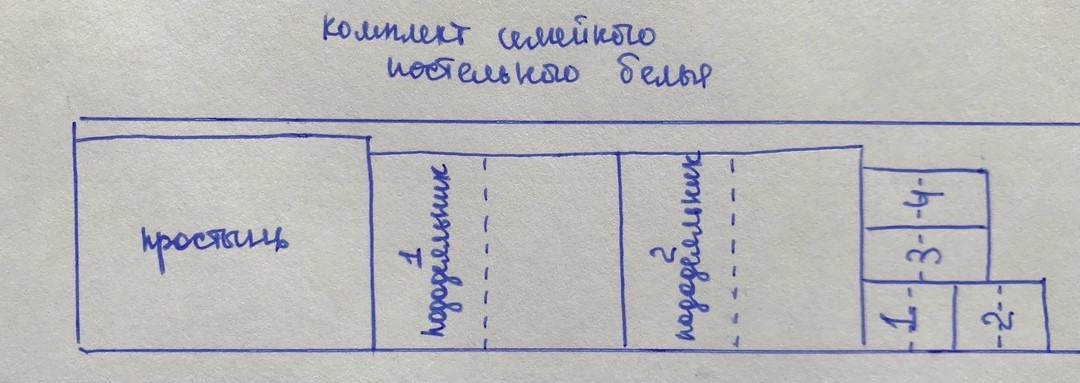 комплект семейного
постельного белья
простынь
1
пододеяльник
2
пододеяльник
4
3
1
2